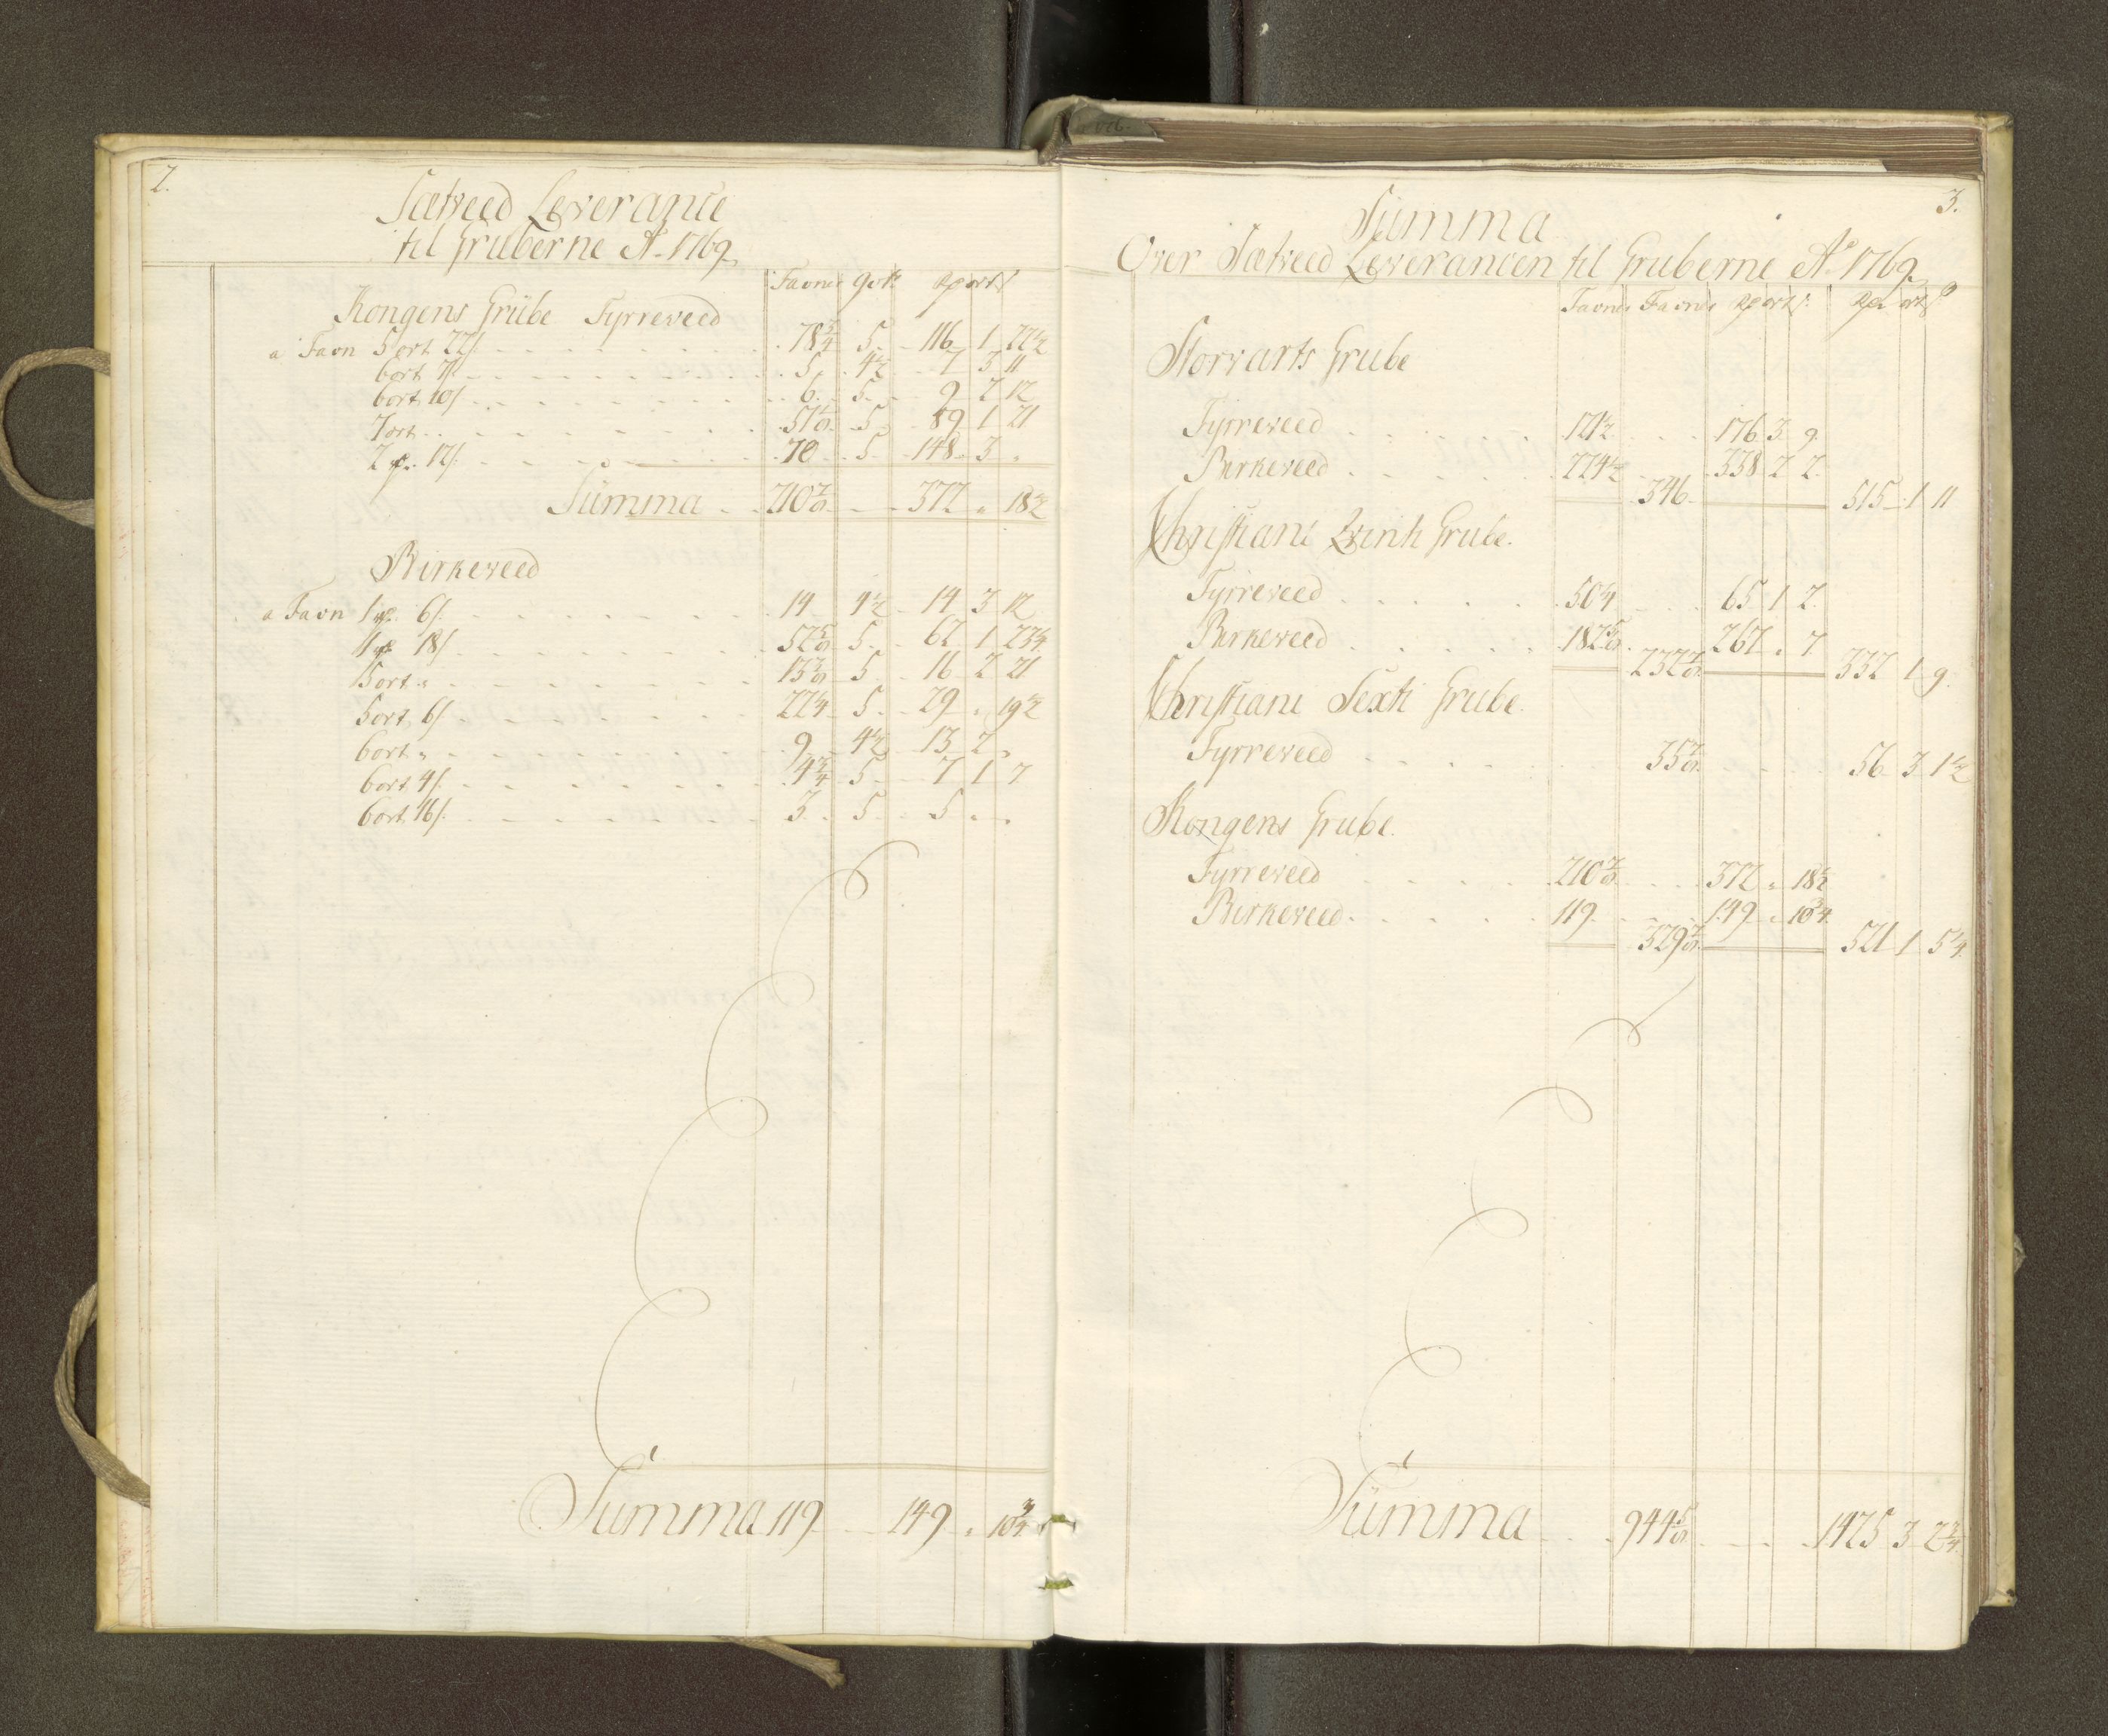 2.
Sætveed Leverance
til Gruberne Aº 1769
Favne qvt rd ort s
Kongens Grübe Fyrreveed
a Favn 5 ort 22 s. 78 3/4 5 116 1 22 1/2
6 ort 7 s 5 4 1/2 7 3 11
6 ort 10 s 6 5 9 2 12
7 ort 51 5 89 1 21
2 rd. 12 s. 70 5 148 3 "
Sümma 210 372 " 18 1/2
Birkeveed
a Favn 1 rd. 6 s. 14 4 1/2 14 3 12
1 rd 18 s 52 5 62 1 23
5 ort " 13 5 16 2 21
5 ort 6 s 22 1/4 5 29 " 19 1/2
6 ort " 9 4 1/2 13 2 "
6 ort 4 s. 4 3/4 5 7 1 7
6 ort 16 s. 3 5 5 " "
Sümma 119 149 " 10 3/4
3.
Sümma
Over Sætveed Leverancen til Gruberne Aº 1769
Favne Favne rd ort s. rd ort s
Storvarts Grube
Fyrreveed 121 1/2 176 3 9.
Birkeveed 224 1/2 338 2 2.
346 515 1 11
Christiani Qvinti Grube.
Fyrreveed 50 1/4 65 1 2.
Birkeveed 182 267 " 7
232 332 1 9.
Christiani Sexti Grube.
Fyrreveed 35 56 3 1 1/2
Kongens Grube.
Fyrreveed 210 372 " 18 1/2
Birkeveed 119. 149 " 10 3/4.
329 521 1 5 1/4
Sümma 944 1425 3 2 3/4